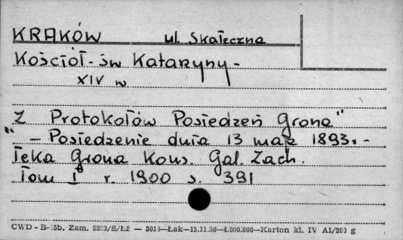 KRAKÓW ul. Skałeczna
Kościół - św Katarzyny -
XIV w
"Z Protokołów Posiedzeń Grona"
- Posiedzenie dnia 13 maja 1893. -
Teka Grona Kons. Gal. Zach.
Tom I r. 1900 s. 391
CWD - B-35b. Zam. 5223/S/Łź — 2010—Łak—15.11.56—4.000.000—Karton kl. IV A1/200 g